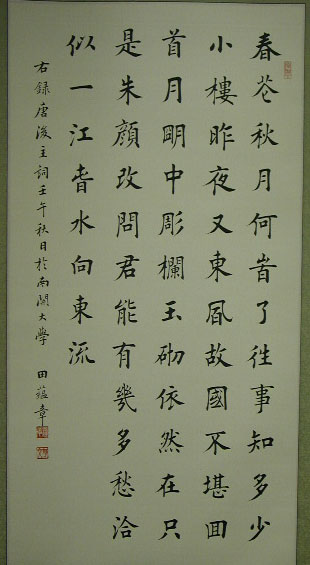 春花秋月何旹了往事知多少
小樓昨夜又東風故國不堪回
首月明中彫欄玉砌依然在只
是朱顔改問君能有幾多愁洽
似一江旾水向東流
右録唐後主詞壬午秋日於南開大學 田蘊章